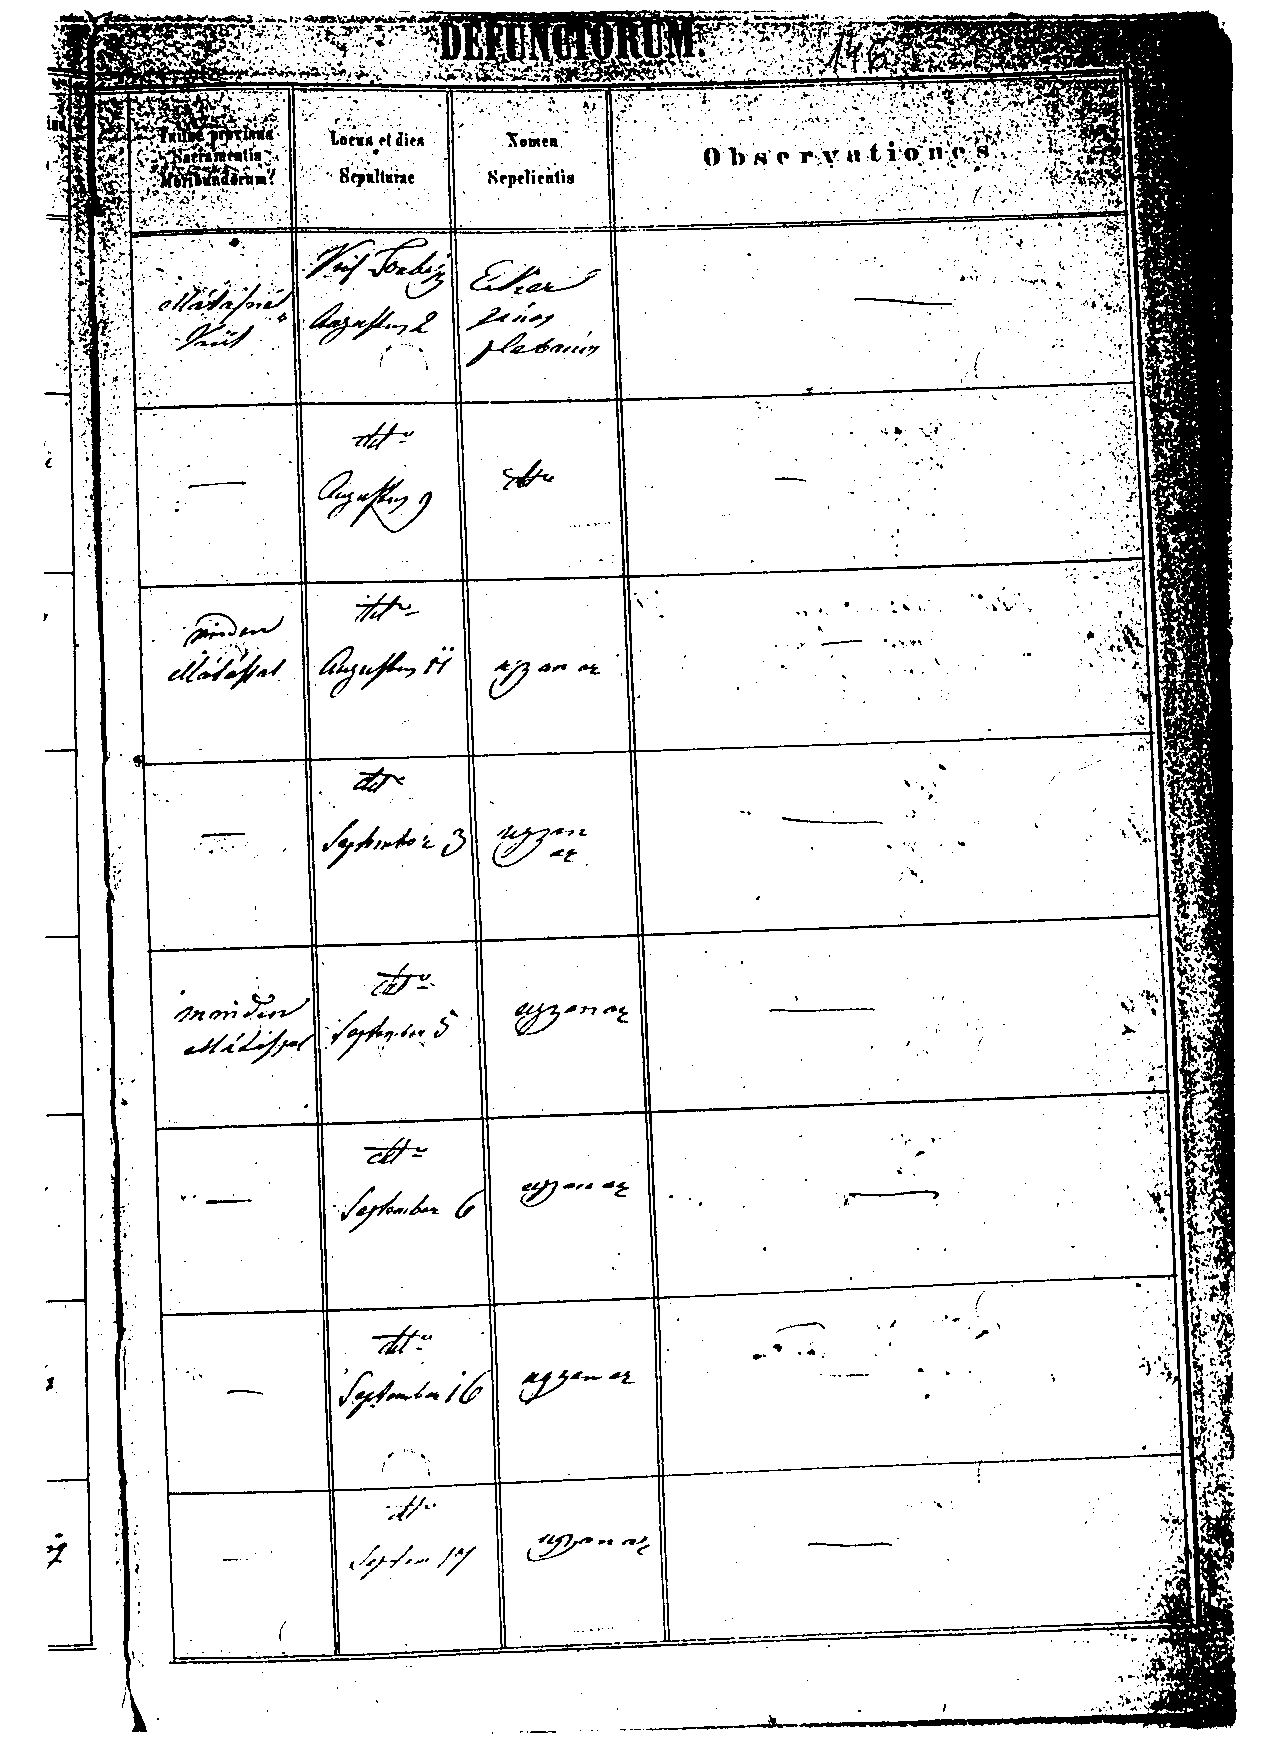 DEFUNCTORUM.
146
Fuitne provisus
Sacramentis
Moribundorum?
Locus et dies
Sepulturae
Nomen
Sepelientis
Observationes
Augustus 2
János
plebános
dtto
Augustus 9
dtto
minden
ellátással
dtto
Augustus 11
ugyan az
dtto
September 3
ugyan
az
minden
ellátással
dtto
September 5
ugyan az
dtto
September 6
ugyan az
dtto
September 16
ugyan az
dtto
Septem 17
ugyan az